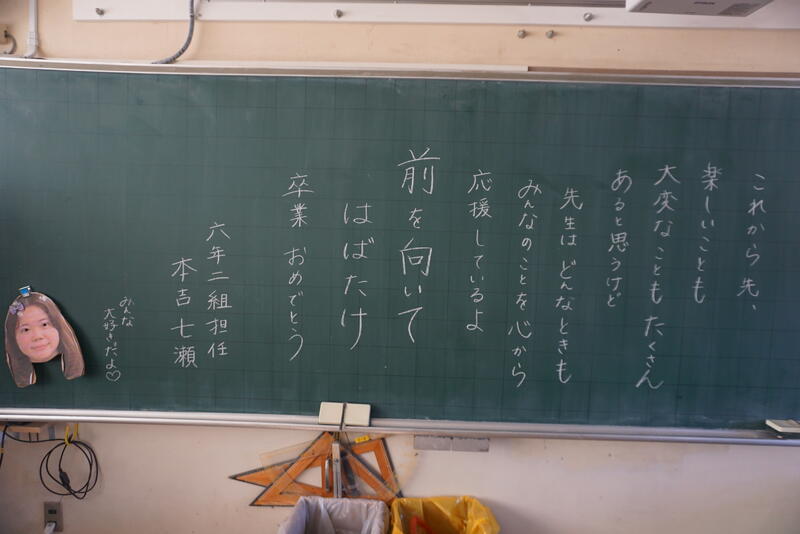 これから先、
楽しいことも
大変なこともたくさん
あると思うけど
先生はどんなときも
みんなのことを心から
応援しているよ
前を向いて
はばたけ
卒業おめでとう
六年二組担任
本吉七瀬
みんな
大好きだよ♡